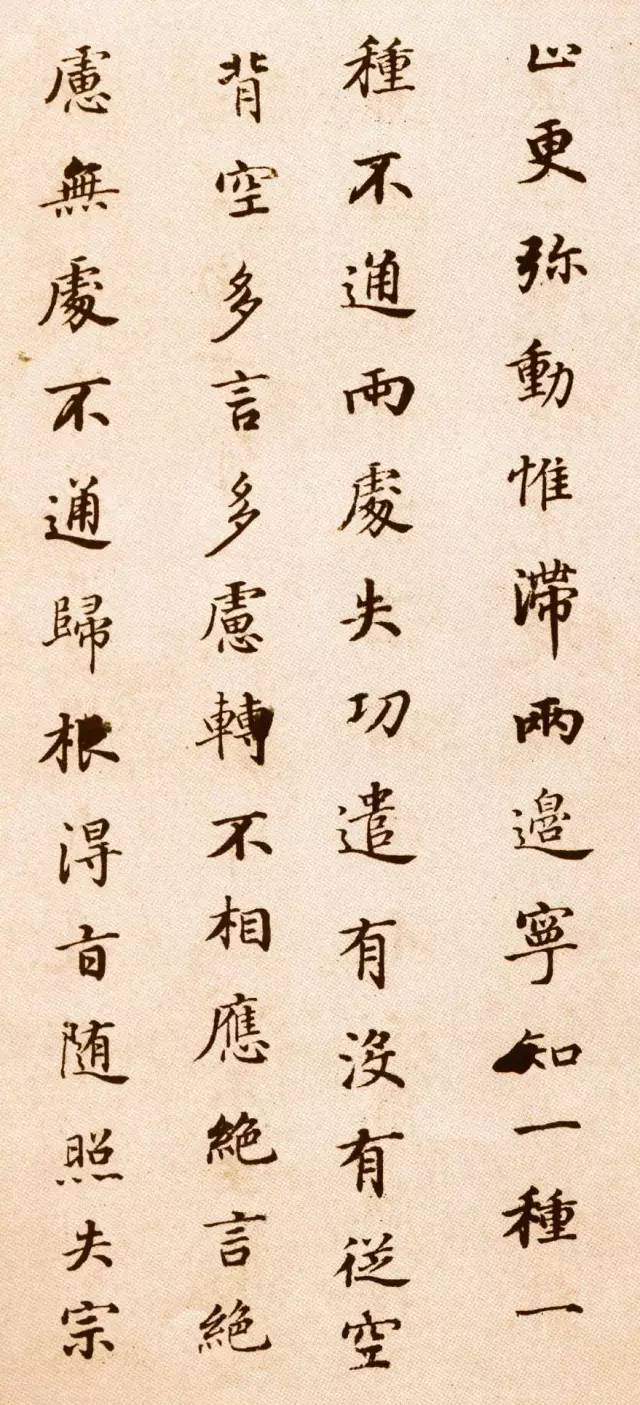 止更弥動惟滯兩邊寧知一種一
種不通兩處失功遣有沒有從空
背空多言多慮轉不相應絶言絶
慮無處不通歸根得旨随照失宗